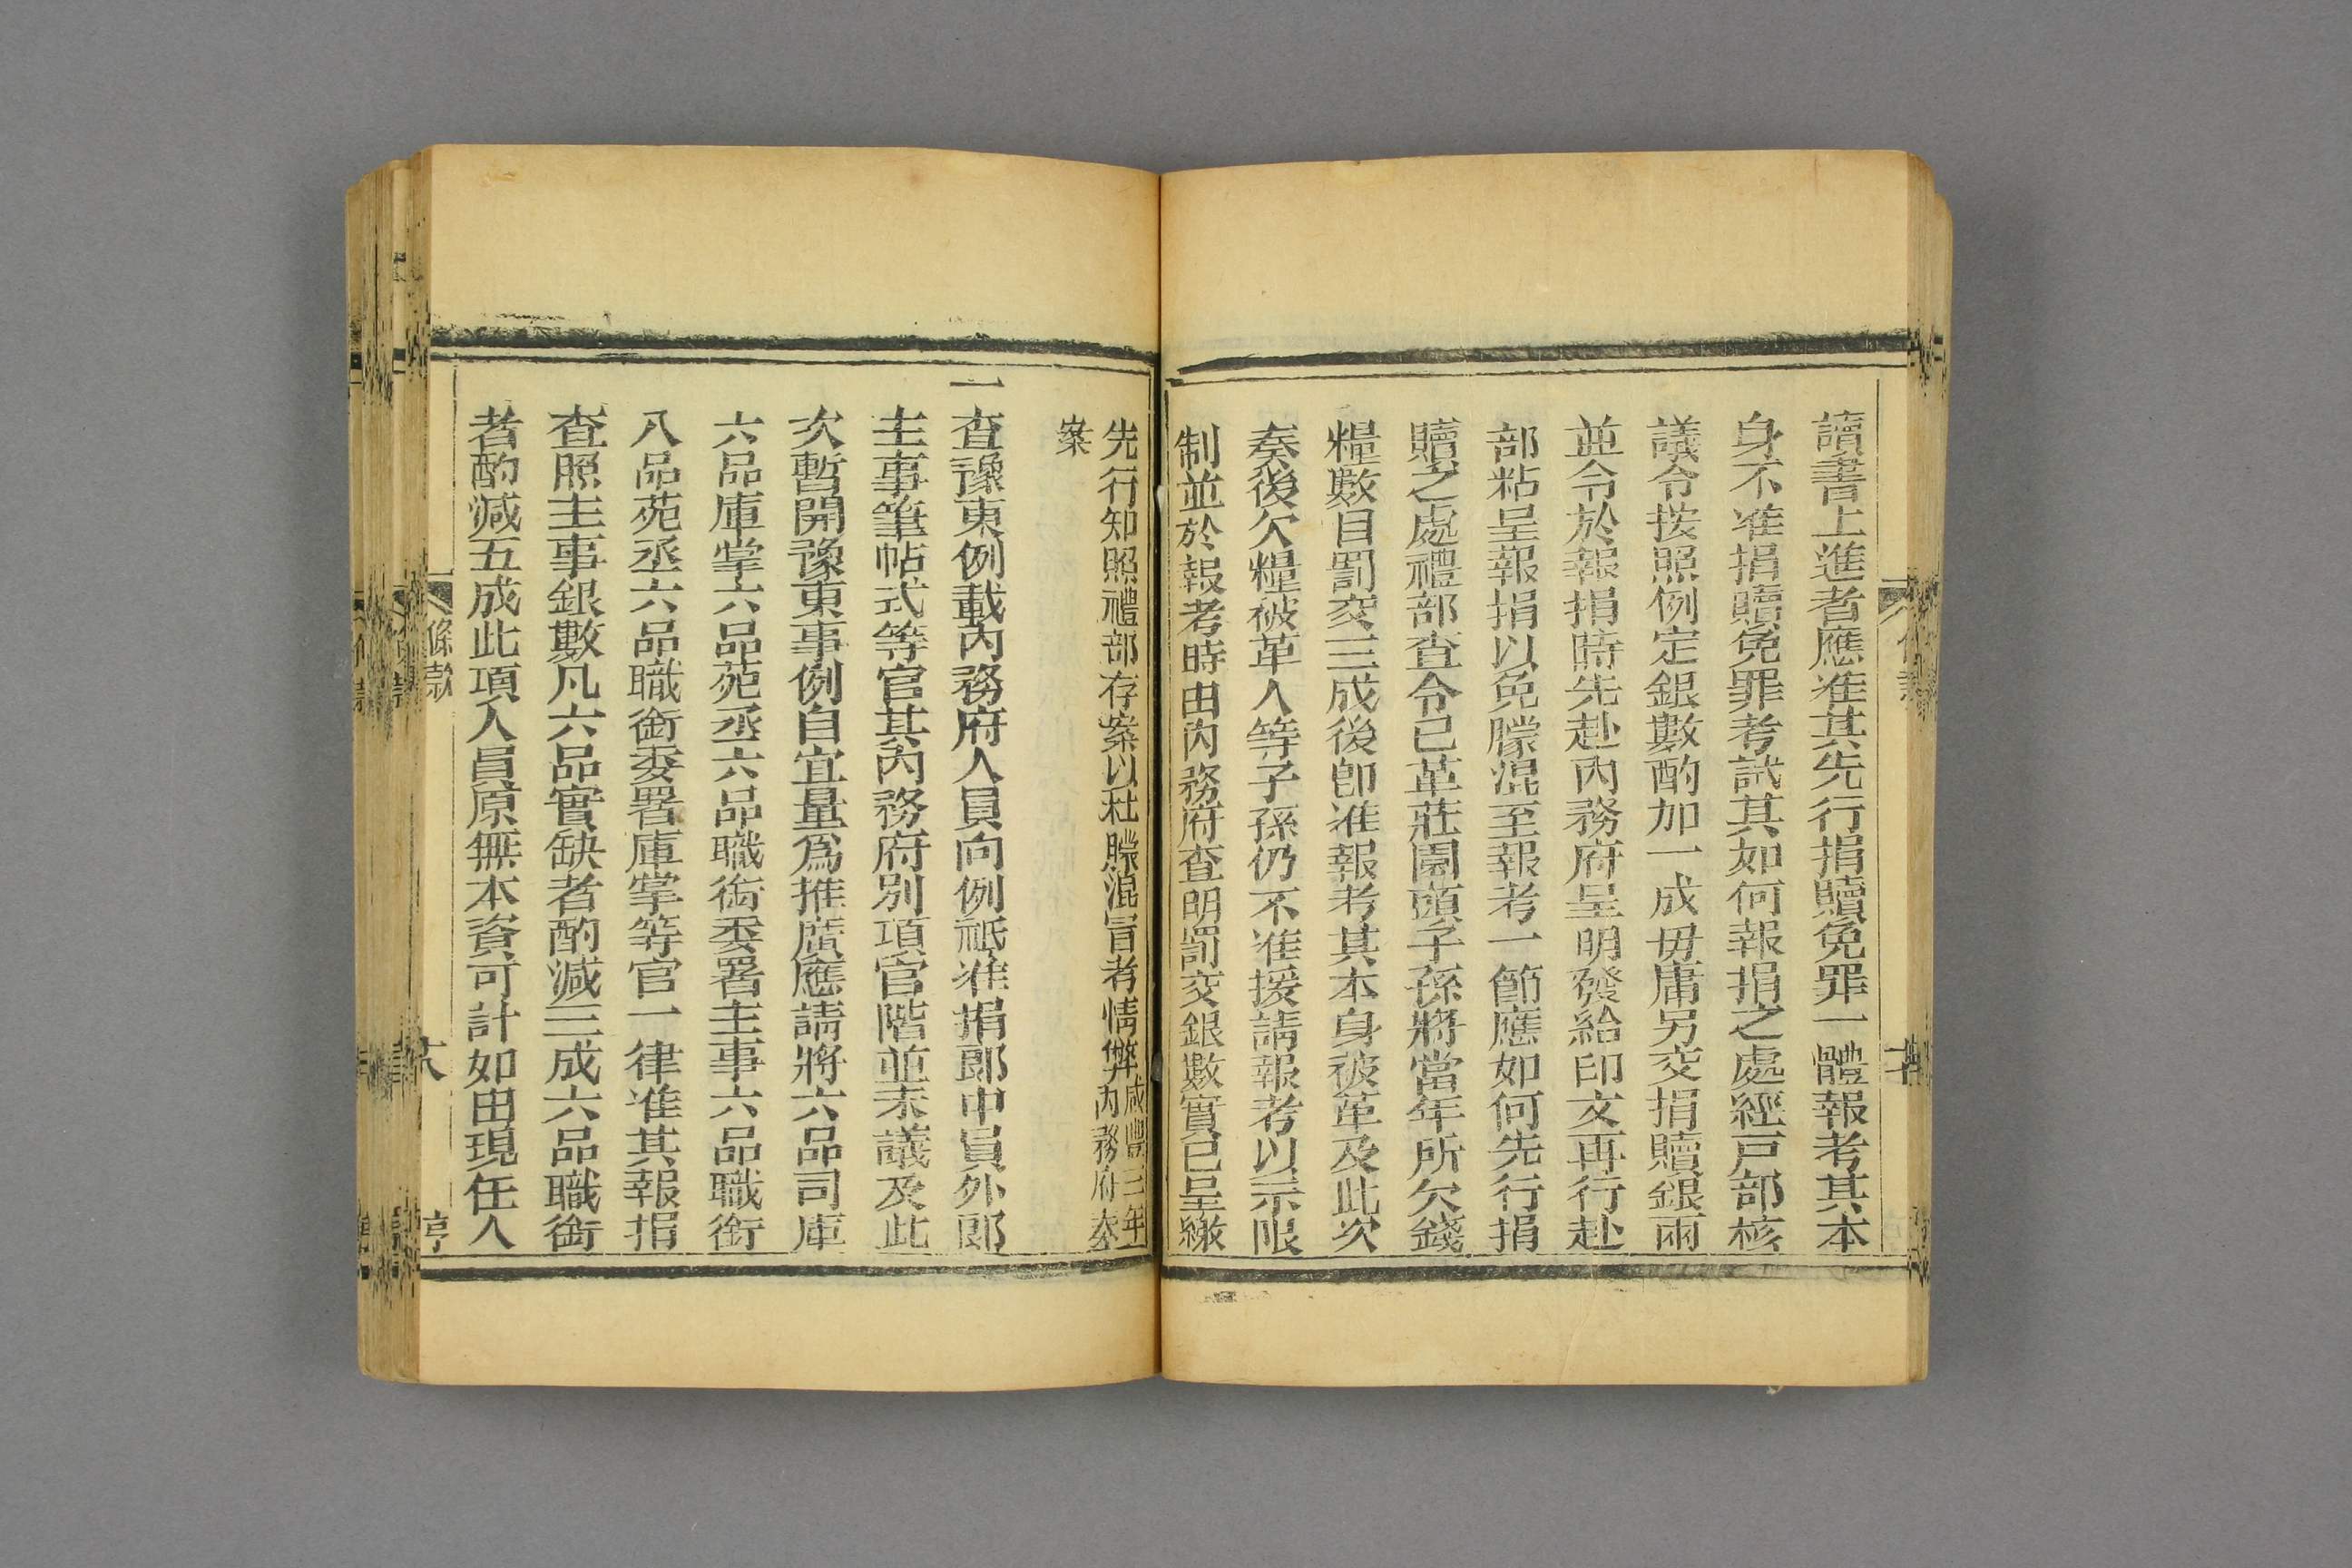 讀書上進者應准其先行捐贖免罪一體報考其本
身不准捐贖免罪考試其如何報捐之處經戸部核
議令按照例定銀數酌加一成毋庸另交捐贖銀兩
並令於報捐時先赴内務府呈明發給印文再行赴
部粘呈報捐以免朦混至報考一節應如何先行捐
贖之處禮部査令已革莊園頭子孫將當年所欠錢
糧數目罰交三成後卽准報考其本身被革及此次
奏後欠糧被革人等子孫仍不准援請報考以示限
制並於報考時由内務府査明罰交銀數實已呈繳
先行知照禮部存案以杜朦混冒考情弊咸豐三年内務府奏
案
一査豫東例載内務府人員向例祗准捐郎中員外郎
主事筆帖式等官其内務府別項官階並未議及此
次暫開豫東事例自宜量爲推廣應請將六品司庫
六品庫掌六品苑丞六品職銜委署主事六品職銜
八品苑丞六品職銜委署庫掌等官一律准其報捐
査照主事銀數凡六品實缺者酌減三成六品職銜
者酌減五成此項人員原無本資可計如由現任人
條款
六
亨